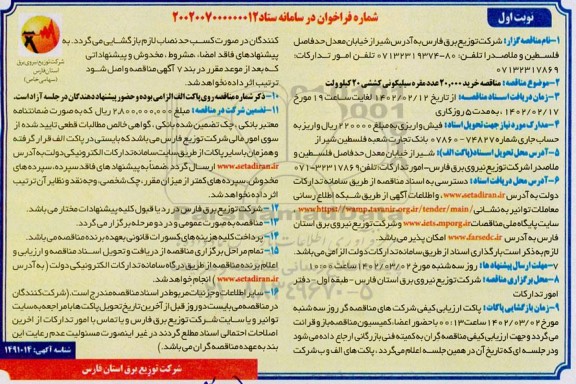 نوبت اول
شماره فراخوان در سامانه ستاد ۲۰۰۲۰۰۷۰۰۰۰۰۰۰۱۲
شرکت توزیع نیروی برق
استان فارس
(سهامی خاص)
۱- نام مناقصه گزار: شرکت توزیع برق فارس به آدرس شیراز خیابان معدل حدفاصل
فلسطین و ملاصدرا تلفن: ۸۰-۰۷۱۳۲۳۱۹۳۷۴ تلفن امور تدارکات:
۰۷۱۳۲۳۱۷۸۶۹
۲- موضوع مناقصه: مناقصه خرید ۲۰,۰۰۰ عدد مقره سیلیکونی کششی ۲۰ کیلوولت
۳- زمان دریافت اسناد مناقصه: از تاریخ ۱۴۰۲/۰۲/۱۲ لغایت ساعت ۱۹ مورخ
۱۴۰۲/۰۲/۱۷، به مدت ۵ روز کاری
۴- مدارک مورد نیاز جهت تحویل اسناد: فیش واریزی به مبلغ ۲۲۰۰۰۰ ریال واریز به
حساب جاری شماره ۷۴۸۲۷-۰۷۸۶۰ بانک تجارت شعبه فلسطین شیراز
۵- آدرس محل تحویل اسناد (پاکت الف): شیراز خیابان معدل حدفاصل فلسطین و
ملاصدرا شرکت توزیع نیروی برق فارس- امور تدارکات: تلفن ۳۲۳۱۷۸۶۹-۰۷۱
۶- آدرس محل دریافت اسناد: دسترسی به اسناد مناقصه از طریق سامانه تدارکات
دولت به آدرس www.setadiran.ir، واطلاعات آگهی از طریق شبکه اطلاع رسانی
معاملات توانیر به نشانی https://wamp.tavanir.org.ir/tender/main/
سایت پایگاه ملی مناقصات www.iets.mporg.ir وشرکت توزیع نیروی برق استان
فارس به آدرس www.farsedc.ir امکان پذیر می باشد.
لازم به ذکر است بارگذاری اسناد از طریق سامانه تدارکات دولت الزامی می باشد.
۷- مهلت ارسال پیشنهاد ها: روز سه شنبه مورخ ۱۴۰۲/۰۳/۰۲ ساعت ۱۰:۰۰
۸- محل برگزاری مناقصه: شرکت توزیع نیروی برق استان فارس - طبقه اول - دفتر
امور تدارکات
۹- زمان بازگشایی پاکات: پاکت ارزیابی کیفی شرکت های مناقصه گر روز سه شنبه
مورخ ۱۴۰۲/۰۳/۰۲ ساعت ۱۳:۰۰ با حضور اعضا کمیسیون مناقصه باز و قرائت
می گردد و جهت ارزیابی کیفی مناقصه گران به کمیته فنی بازرگانی ارجاع داده می شود
و در جلسه ای که تاریخ آن در همین جلسه اعلام می گردد، پاکت های الف و ب شرکت
کنندگان در صورت کسب حد نصاب لازم بازگشایی می گردد. به
پیشنهادهای فاقد امضاء، مشروط، مخدوش و پیشنهاداتی
که بعد از موعد مقرر در بند ۷ آگهی مناقصه واصل شود
ترتیب اثر داده نخواهد شد.
۱۰- ذکر شماره مناقصه روی پاکت الف الزامی بوده و حضور پیشنهاددهندگان در جلسه آزاد است.
۱۱- تضمین شرکت در مناقصه: مبلغ ۲,۸۰۰,۰۰۰,۰۰۰ ریال که به صورت ضمانت نامه
معتبر بانکی، چک تضمین شده بانکی، گواهی خالص مطالبات قطعی تایید شده از
سوی امور مالی شرکت توزیع فارس می باشد که بایستی در پاکت الف قرار گرفته
و همزمان با سایر پاکات از طریق سایت سامانه تدارکات الکترونیکی دولت به آدرس
www.setadiran.ir ارسال گردد. ضمناً به پیشنهادهای فاقد سپرده، سپرده های
مخدوش، سپرده های کمتر از میزان مقرر، چک شخصی، وجه نقد و نظایر آن ترتیب
اثر داده نخواهد شد.
۱۲- شرکت توزیع برق فارس در رد یا قبول کلیه پیشنهادات مختار می باشد.
۱۳- مناقصه به صورت عمومی و در دو مرحله برگزار می گردد.
۱۴- پرداخت کلیه هزینه های کسورات قانونی بعهده برنده مناقصه می باشد.
۱۵- تمام مراحل برگزاری مناقصه از دریافت و تحویل اسناد مناقصه و ارزیابی و
اعلام برنده مناقصه از طریق درگاه سامانه تدارکات الکترونیکی دولت (به آدرس
www.setadiran.ir) انجام خواهد شد.
۱۶- سایر اطلاعات و جزئیات مربوط در اسناد مناقصه مندرج است. (شرکت کنندگان
در مناقصه می بایست دو روز قبل از آخرین تاریخ تحویل پاکت ها با مراجعه به سایت
توانیر و یا سایت شرکت توزیع برق فارس و یا تماس با امور تدارکات از آخرین
اصلاحات احتمالی اسناد مطلع گردند در غیر اینصورت مسئولیت عدم رعایت این
بند به عهده مناقصه گران می باشد.)
شناسه آگهی: ۱۴۹۱۰۱۴
شرکت توزیع برق استان فارس